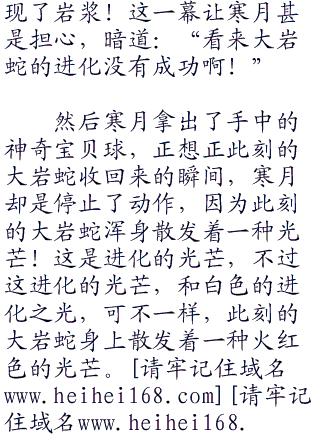 现了岩浆！这一幕让寒月甚
是担心，暗道：“看来大岩
蛇的进化没有成功啊！”
然后寒月拿出了手中的
神奇宝贝球，正想正此刻的
大岩蛇收回来的瞬间，寒月
却是停止了动作，因为此刻
的大岩蛇浑身散发着一种光
芒！这是进化的光芒，不过
这进化的光芒，和白色的进
化之光，可不一样，此刻的
大岩蛇身上散发着一种火红
色的光芒。[请牢记住域名
www.heihei168.com][请牢记
住域名www.heihei168.